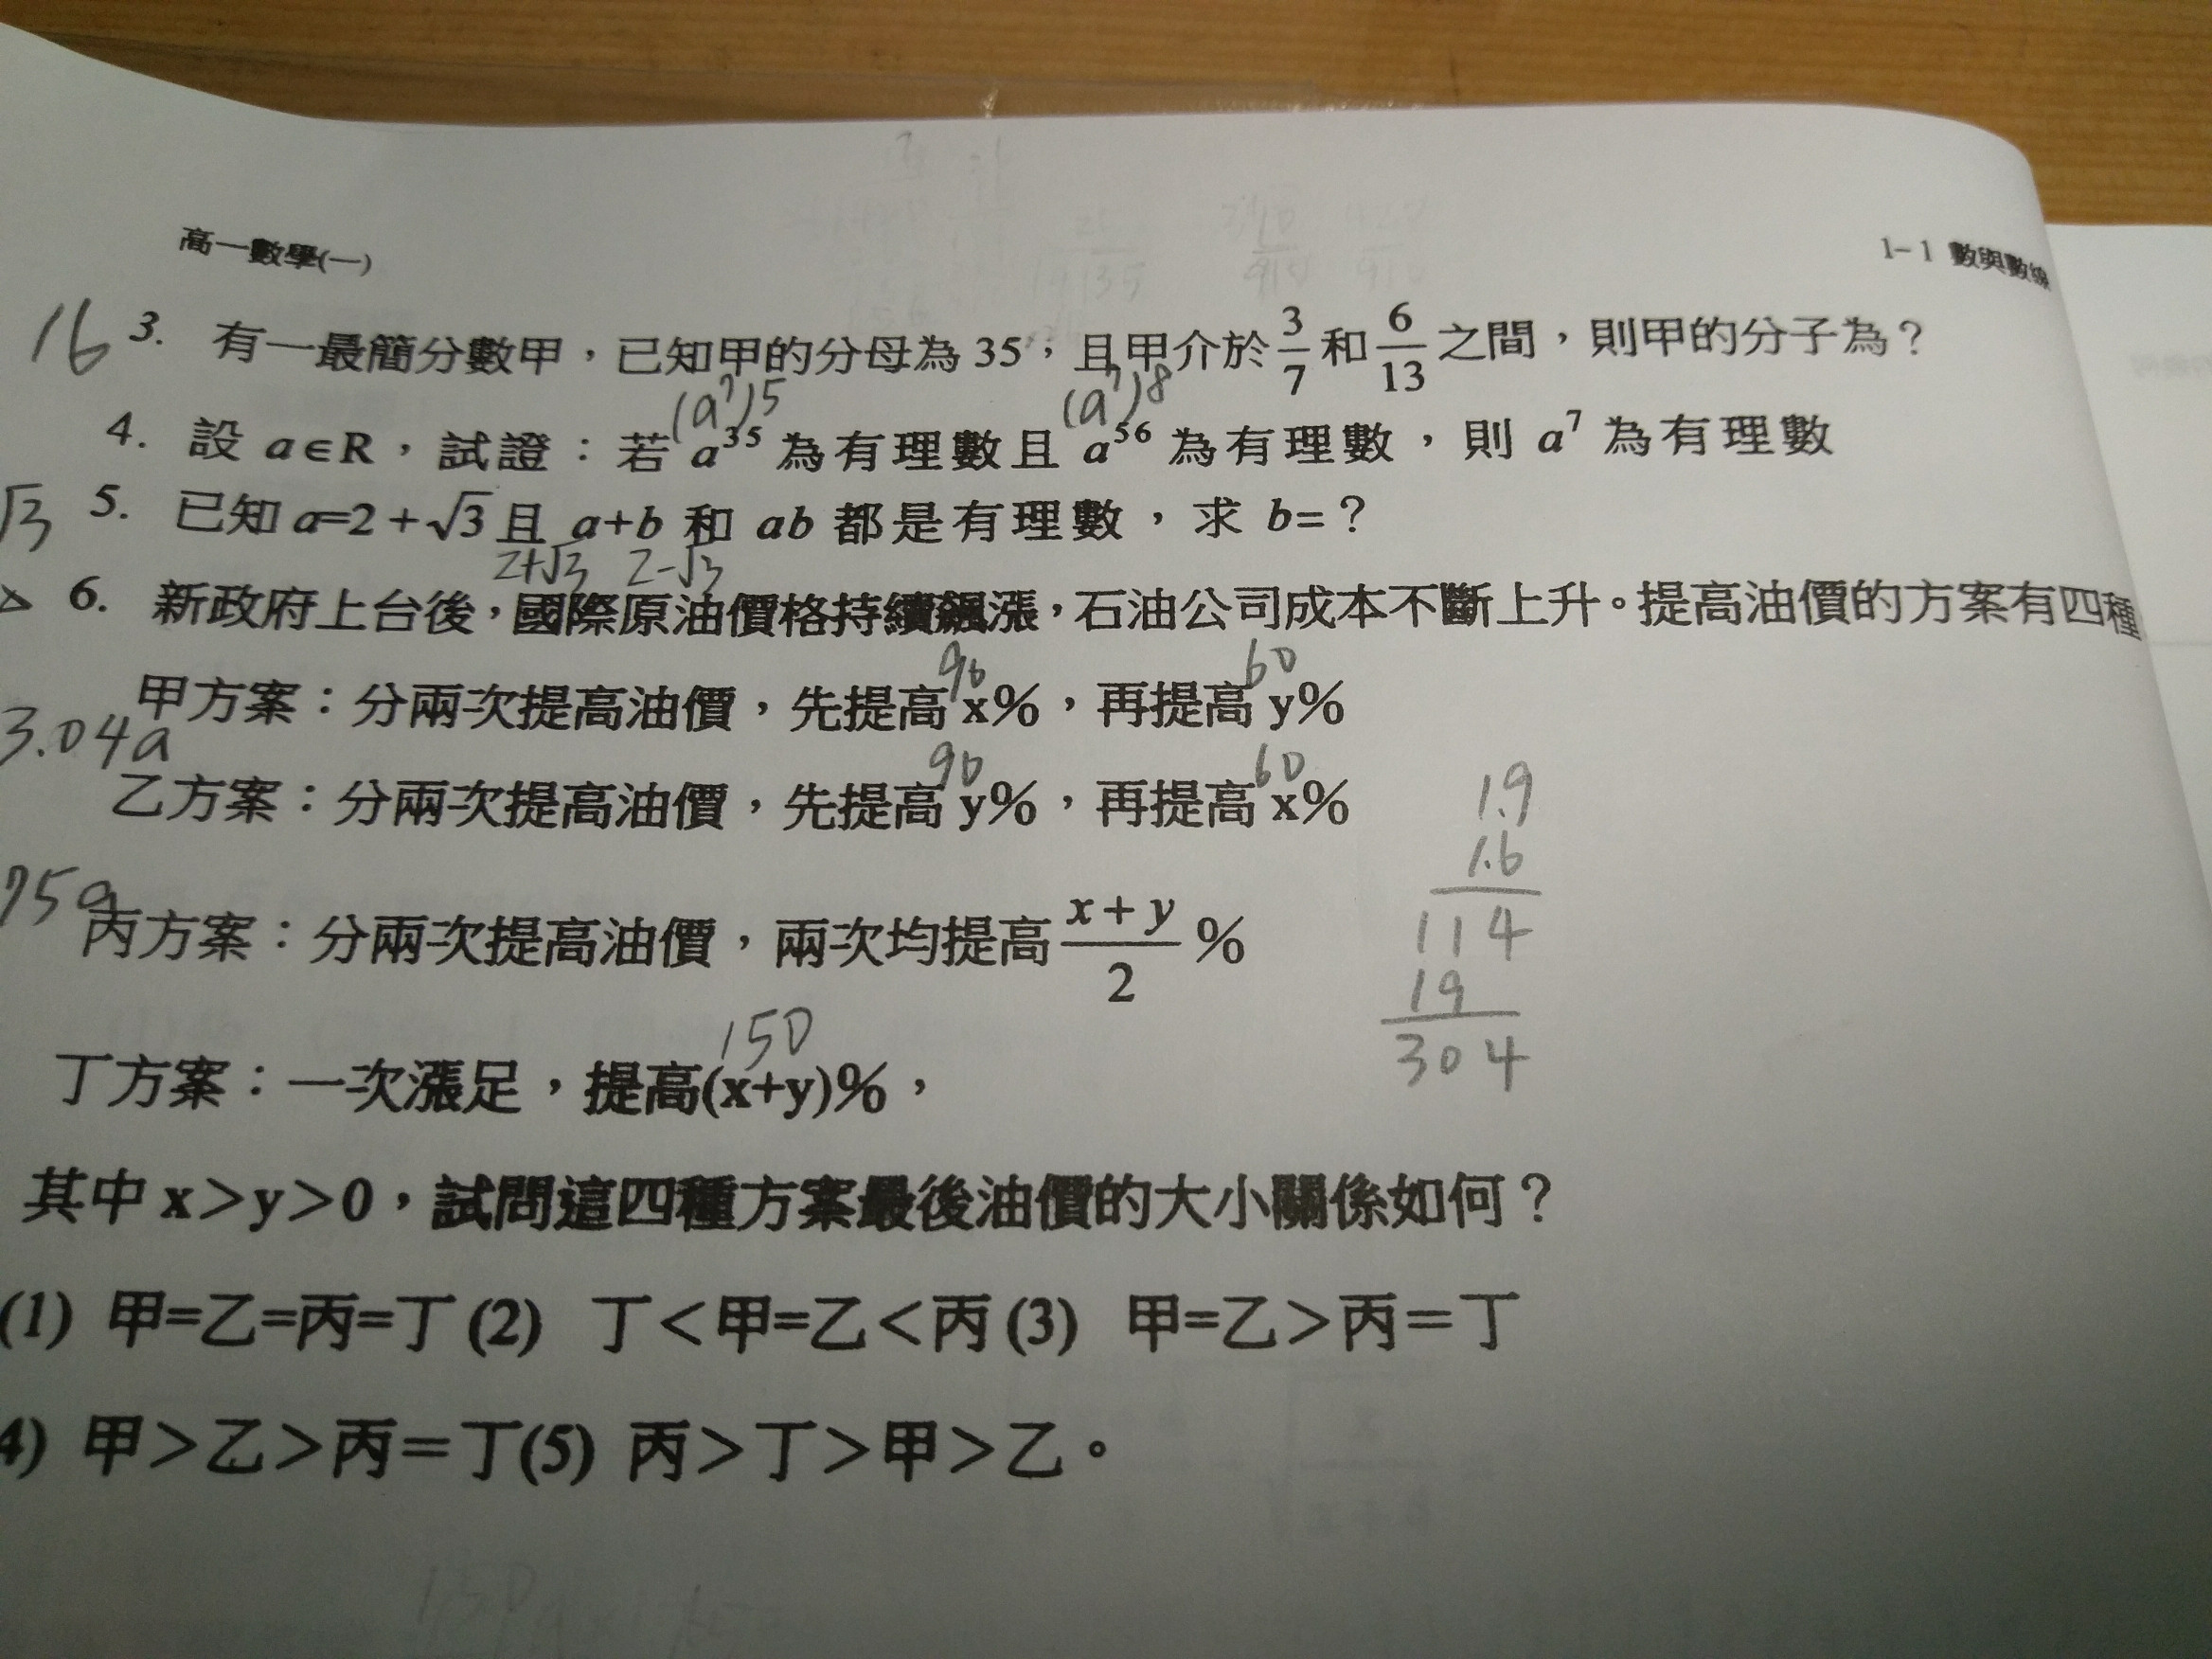 高一數學(一)
1-1 數與數線
16
3. 有一最簡分數甲，已知甲的分母為 35，且甲介於 3/7 和 6/13 之間，則甲的分子為？
(a⁷)5 (a⁷)8
4. 設 a∈R，試證：若 a³⁵ 為有理數且 a⁵⁶ 為有理數，則 a⁷ 為有理數
√3
5. 已知 a=2+√3 且 a+b 和 ab 都是有理數，求 b=？
2+√3 2-√3
6. 新政府上台後，國際原油價格持續飆漲，石油公司成本不斷上升。提高油價的方案有四種
90 60
甲方案：分兩次提高油價，先提高 x%，再提高 y%
3.04a
90 60
乙方案：分兩次提高油價，先提高 y%，再提高 x%
1.9
1.6
114
19
304
75a
丙方案：分兩次提高油價，兩次均提高 (x+y)/2 %
150
丁方案：一次漲足，提高(x+y)%，
其中 x>y>0，試問這四種方案最後油價的大小關係如何？
(1) 甲=乙=丙=丁 (2) 丁<甲=乙<丙 (3) 甲=乙>丙=丁
4) 甲>乙>丙=丁(5) 丙>丁>甲>乙。